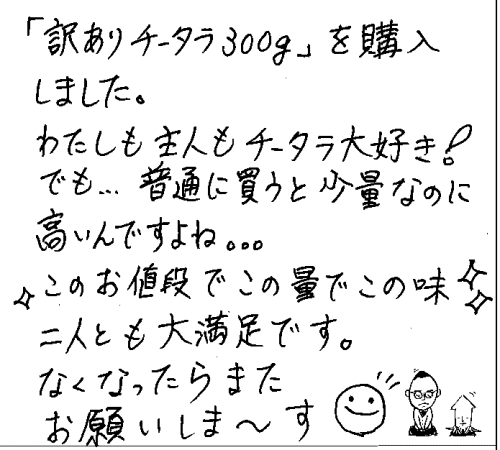 「訳ありチータラ300g」を購入
しました。
わたしも主人もチータラ大好き!
でも…普通に買うと少量なのに
高いんですよね。。。
このお値段でこの量でこの味
二人とも大満足です。
なくなったらまた
お願いしま〜す